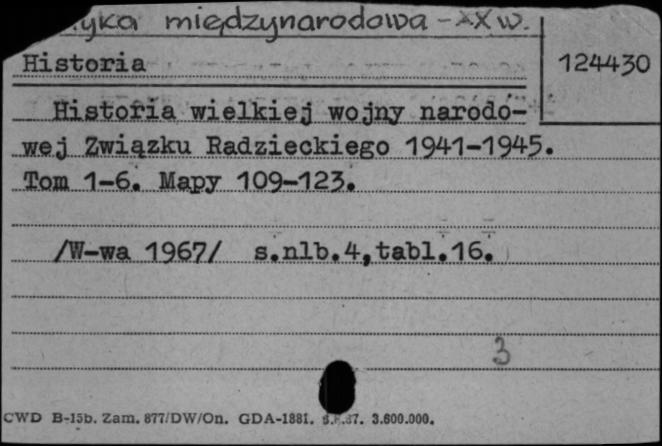 międzynarodowa - XX w.
124430
Historia
Historia wielkiej wojny narodo-
wej Związku Radzieckiego 1941-1945.
Tom 1-6. Mapy 109-123.
/W-wa 1967/ s.nlb.4,tabl.16.
3
CWD B-15b. Zam. 877/DW/On. GDA-1881. 3.600.000.